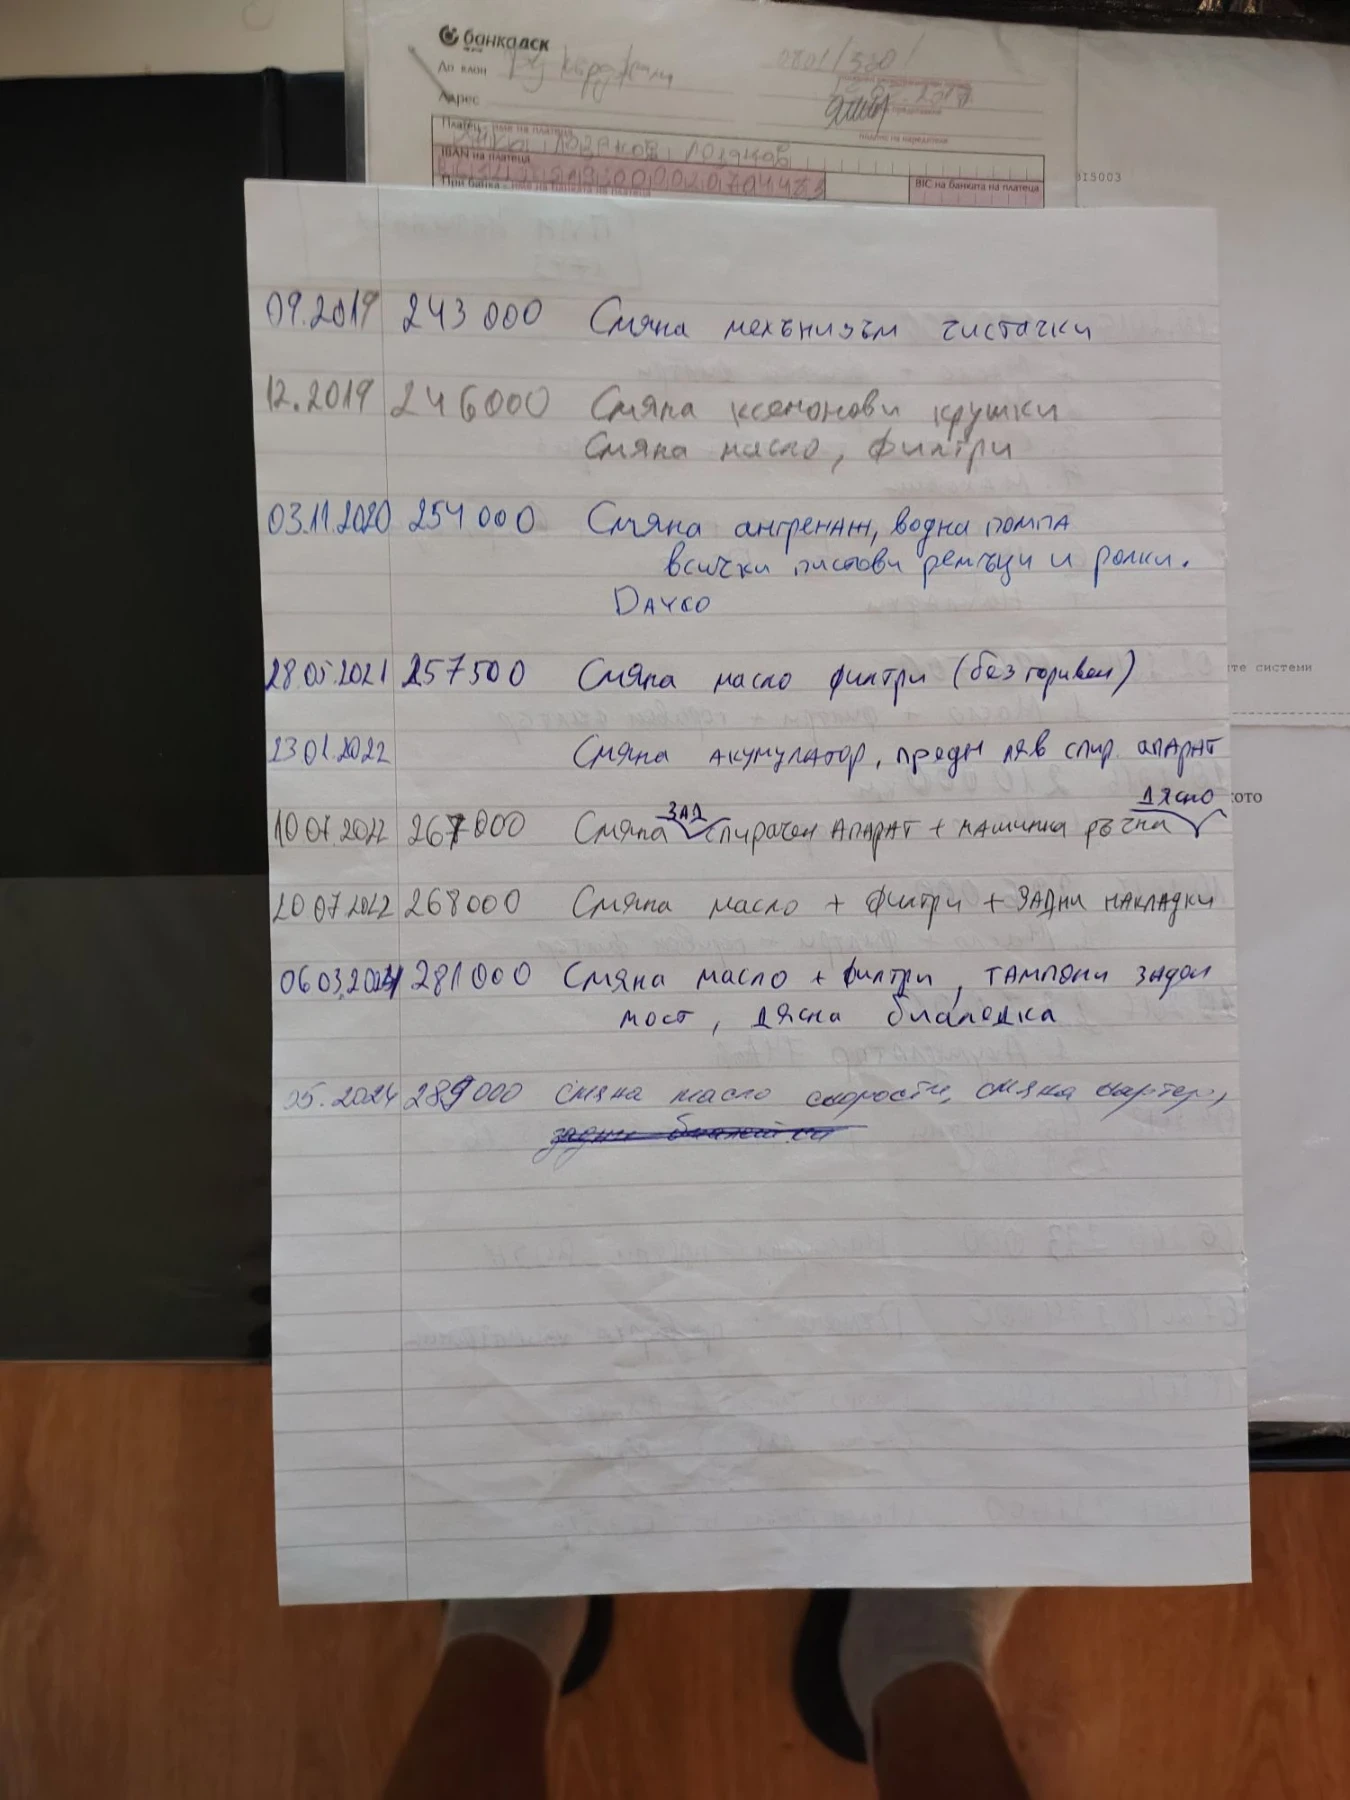 банка дск
До клон
0801/320/
Адрес
подпис на наредителя
Платец - име на платеца
ЛОЗАНОВ ЛОЗАНОВ
IBAN на платеца
При банка - име на банката на платеца
BIC на банката на платеца
BIS003
09.2019 243 000 Смяна механизъм чистачки
12.2019 246000 Смяна ксенонови крушки
Смяна масло, филтри
03.11.2020 254 000 Смяна ангренаж, водна помпа
всички пистови ремъци и ролки.
DАЧКО
28.05.2021 257500 Смяна масло филтри (без горивен)
23 01.2022 Смяна акумулатор, предн ляв спир. апарат
ЗАД
ДЯСНО
10 07 2022 267000 Смяна спирачен апарат + машинка ръчна
20 07 2022 268000 Смяна масло + филтри + задни накладки
06 03,2024 281000 Смяна масло + филтри, тампони заден
мост, дясна биалетка
05.2024 289000 смяна масло скорости, смяна стартер,
те системи
ското